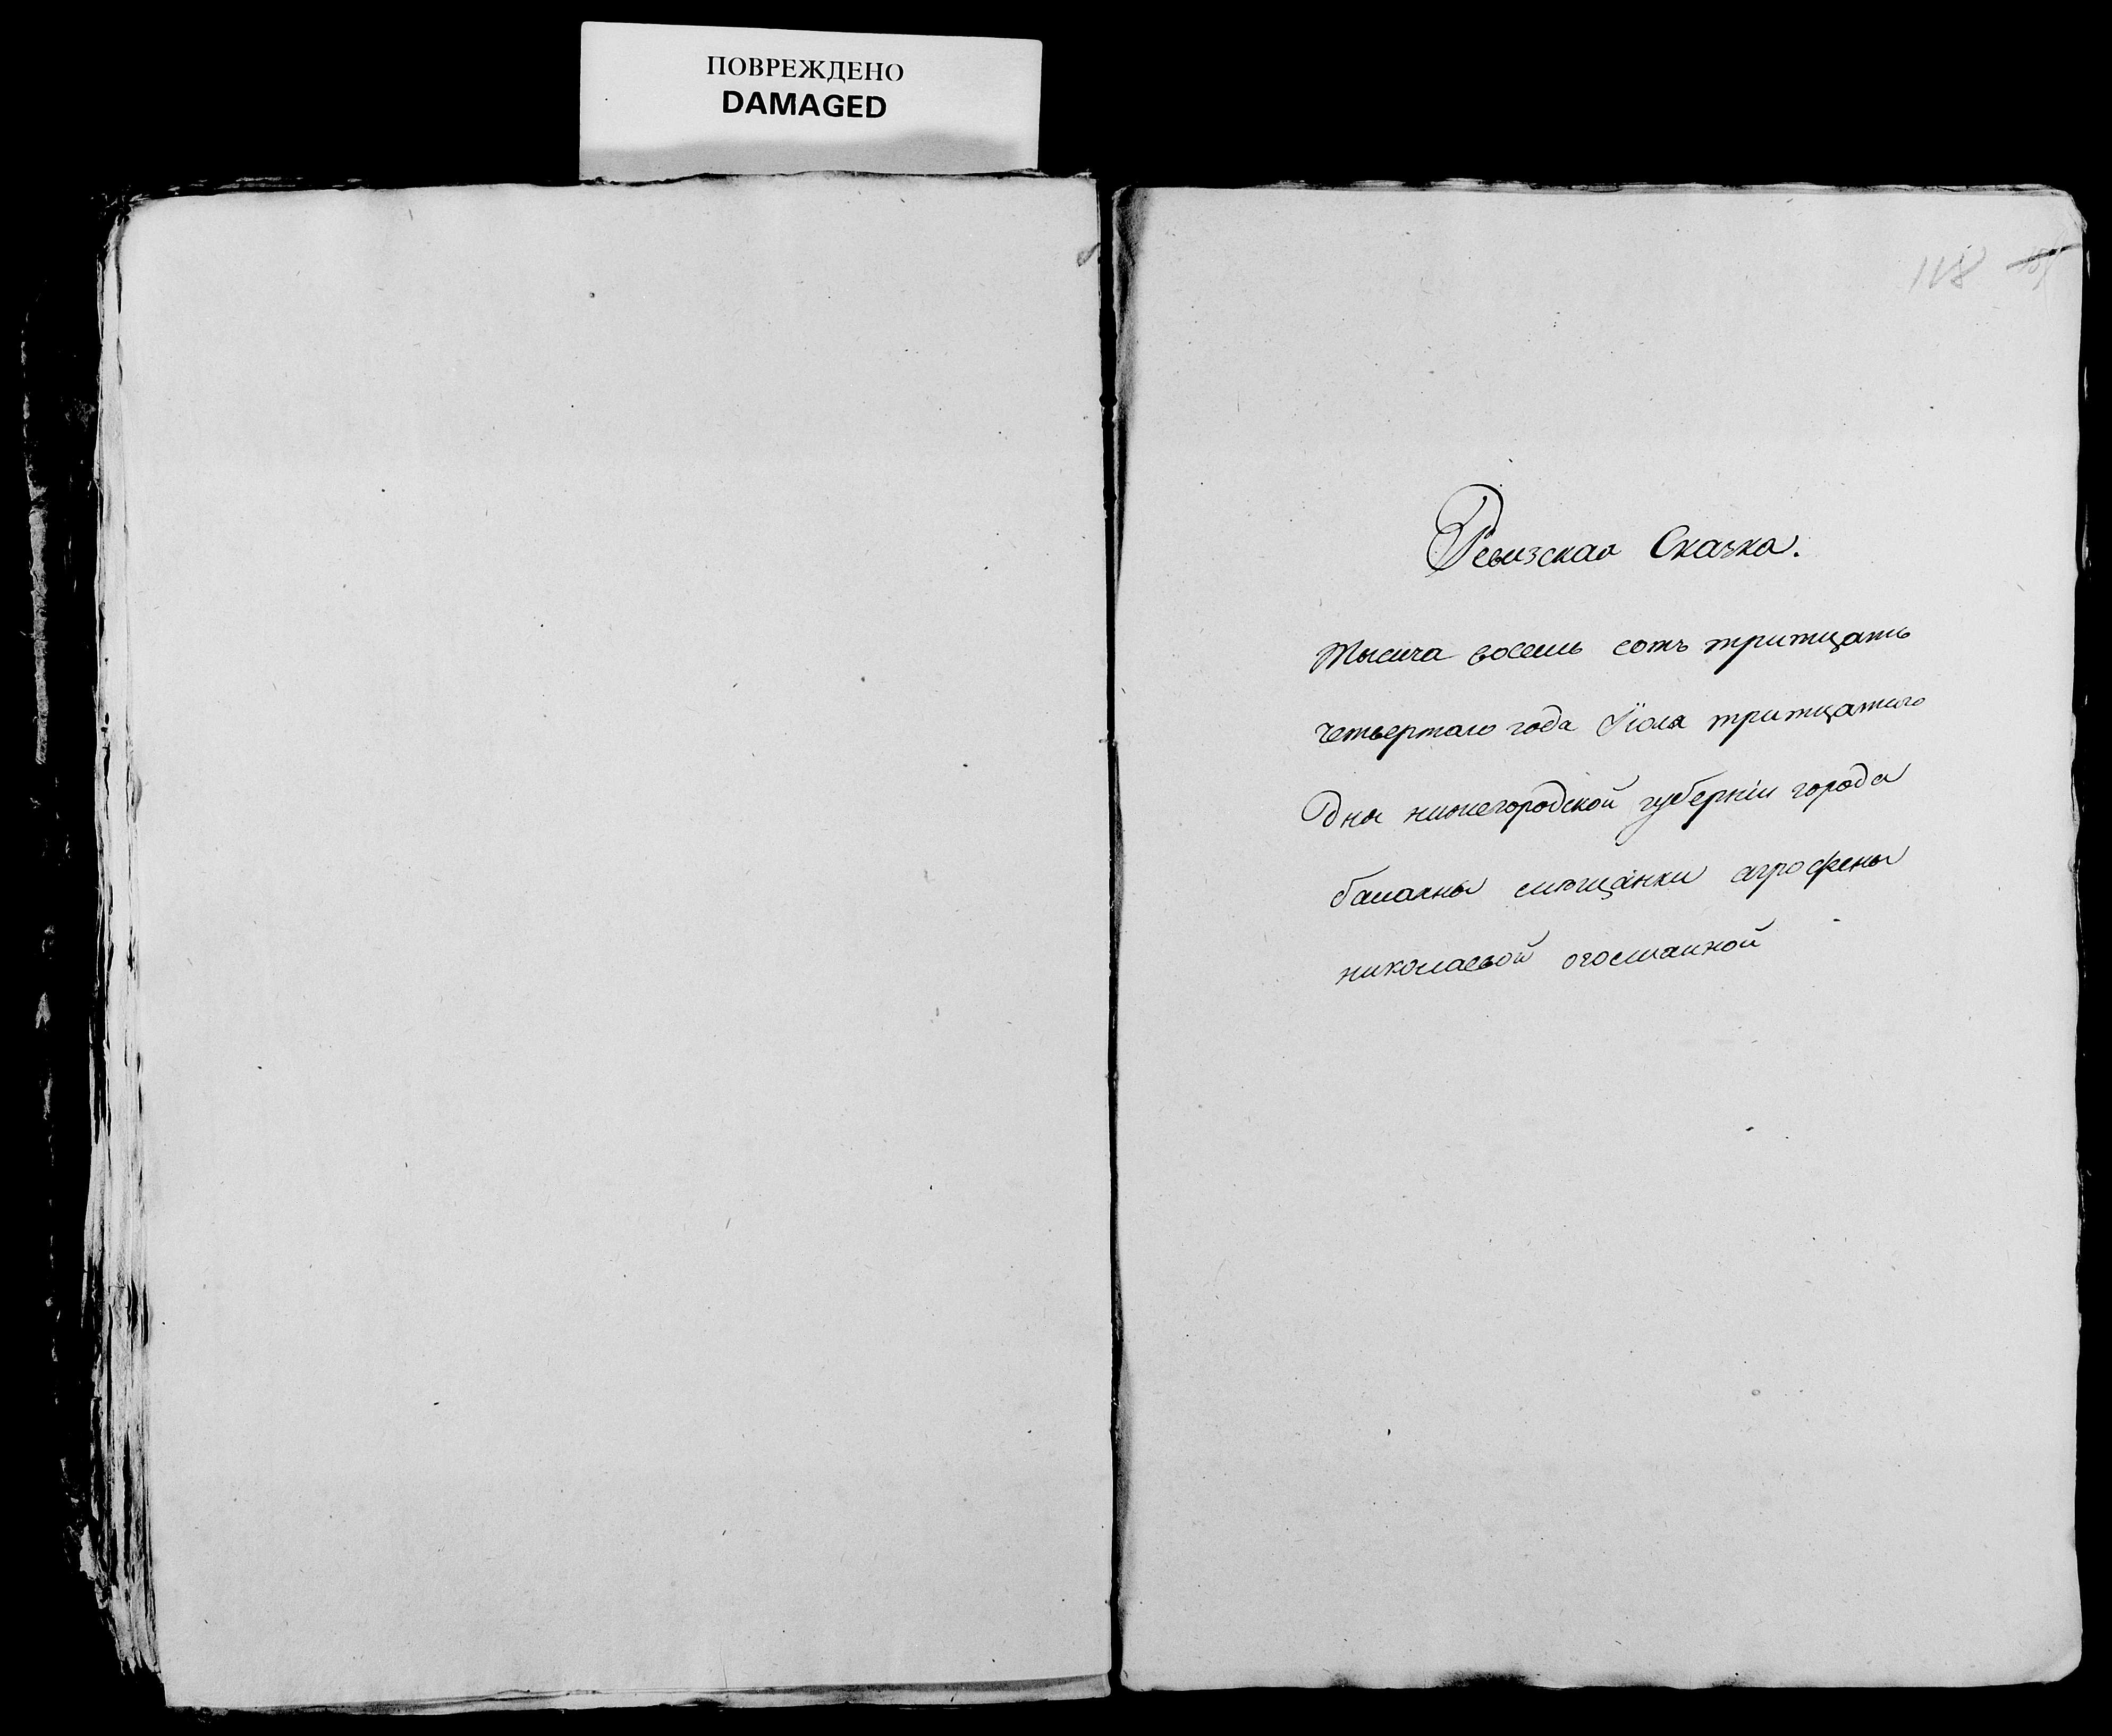 ПОВРЕЖДЕНО
DAMAGED
118
Ревизская Сказка.
Тысеча восемь сотъ тритцать
четвертаго года Июля тритцатого
Дня нижегородской губернiи города
балахны мѣщанки агрофены
николаевой